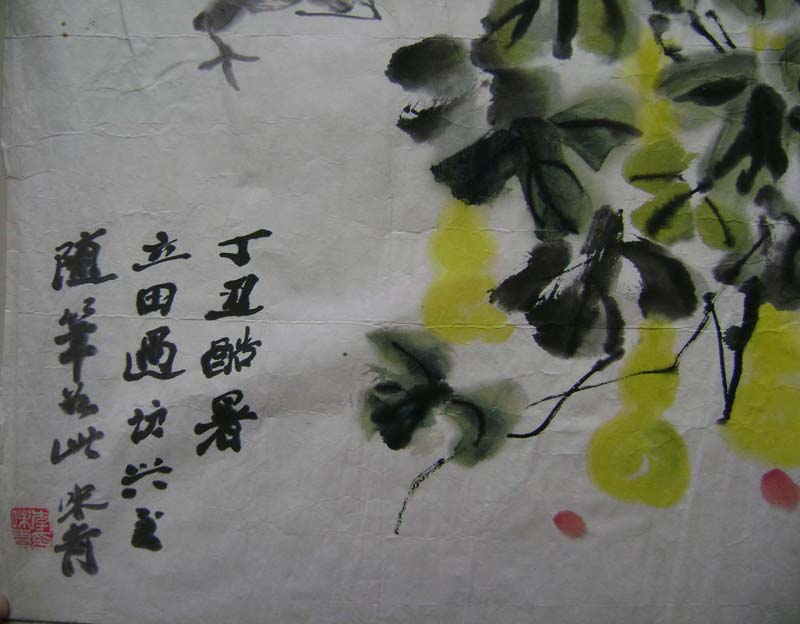 丁丑酷暑
立田過坎兴至
随笔为此 米青